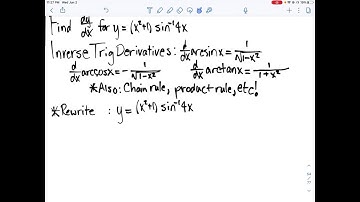 11:27 PM Wed Jun 2
Find dy/dx for y = (x²+1) sin⁻¹4x
Inverse Trig Derivatives: d/dx arcsinx = 1/√1-x²
d/dx arccosx = -1/√1-x² d/dx arctanx = 1/1+x²
*Also: Chain rule, product rule, etc!
*Rewrite : y = (x²+1) sin⁻¹4x